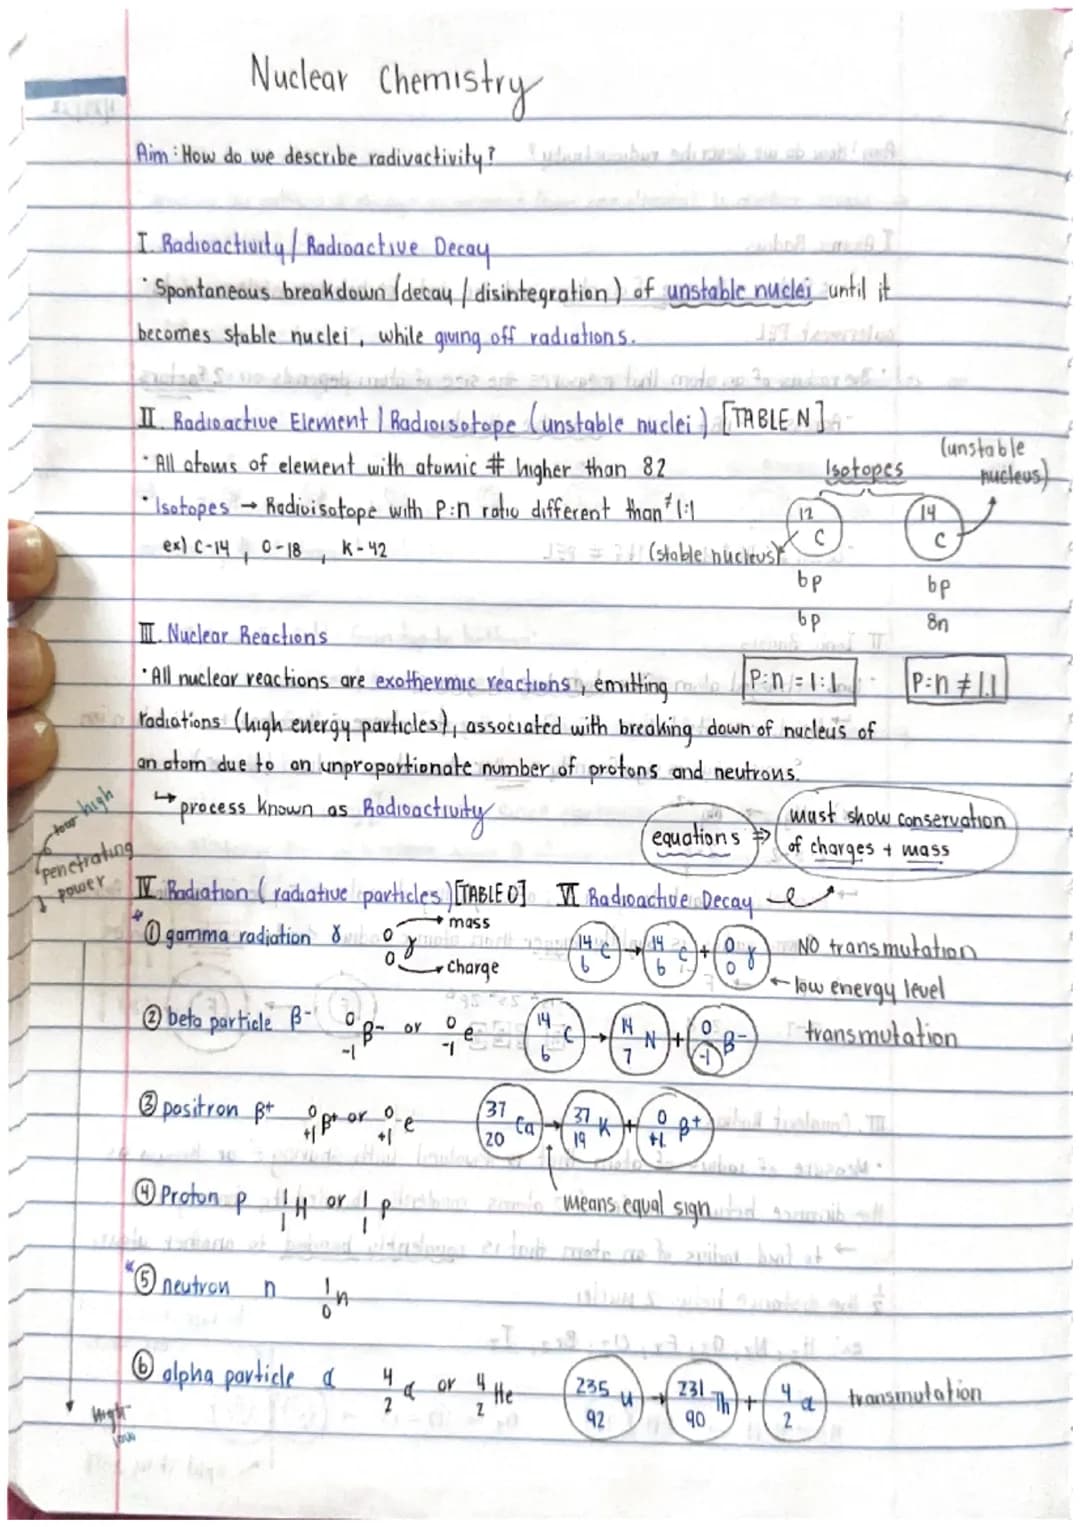 Nuclear Chemistry
Aim: How do we describe radivactivity?
I. Radioactivity/ Radioactive Decay
• Spontaneous breakdown (decay / disintegration) of unstable nuclei until it
becomes stable nuclei, while giving off radiations.
II. Radioactive Element / Radioisotope (unstable nuclei) [TABLE N]
• All atoms of element with atomic # higher than 82
• Isotopes → Radioisotope with P:n ratio different than ≠ 1:1
ex) C-14, O-18, K-42
Isotopes
(unstable nucleus)
12 C
14 C
(stable nucleus)
6p
6p
6p
8n
P:n = 1:1
P:n ≠ 1:1
III. Nuclear Reactions
• All nuclear reactions are exothermic reactions, emitting
radiations (high energy particles), associated with breaking down of nucleus of
an atom due to an unproportionate number of protons and neutrons.
↳ process known as Radioactivity
equations ⇒ must show conservation
of charges + mass
low high
penetrating
power
IV. Radiation (radiative particles) [TABLE O] VI Radioactive Decay
* ① gamma radiation γ 0 0 γ → mass → charge
14 6 C → 14 6 C + 0 0 γ NO transmutation
← low energy level
② beta particle β- 0 -1 β- or 0 -1 e 14 6 C → 14 7 N + 0 -1 β- transmutation
③ positron β+ 0 +1 β+ or 0 +1 e 37 20 Ca → 37 19 K + 0 +1 β+
means equal sign
④ Proton p 1 1 H or 1 1 P
* ⑤ neutron n 1 0 n
⑥ alpha particle α 4 2 α or 4 2 He 235 92 U → 231 90 Th + 4 2 α transmutation
high
low